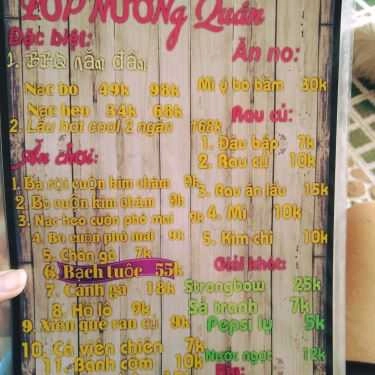 TOP NƯỚNG Quán
Đặc biệt:
1. BBQ
Nạc bò 49k 98k
Nạc heo 34k 68k
2. Lẩu hải 2 ngăn 168k
Ăn chơi:
1. Ba rọi cuộn kim châm 9k
2. Bò cuộn kim châm 9k
3. Nạc heo cuộn phô mai 9k
4. Bò cuộn phô mai 9k
5. Chân gà 7k
6. Bạch tuộc 55k
7. Cánh gà 18k
8. Hồ lô 9k
9. Xiên que rau củ 9k
10. Cá viên chiên 7k
11. Bánh cốm 10k
Ăn no:
Mì ý bò bằm 30k
Rau củ:
1. Đậu bắp 7k
2. Rau củ 10k
3. Rau ăn lẩu 15k
4. Mì 10k
5. Kim chi 10k
Giải khát:
Strongbow 25k
Sả tranh 7k
Pepsi ly 5k
Nước ngọt 12k
Bia: